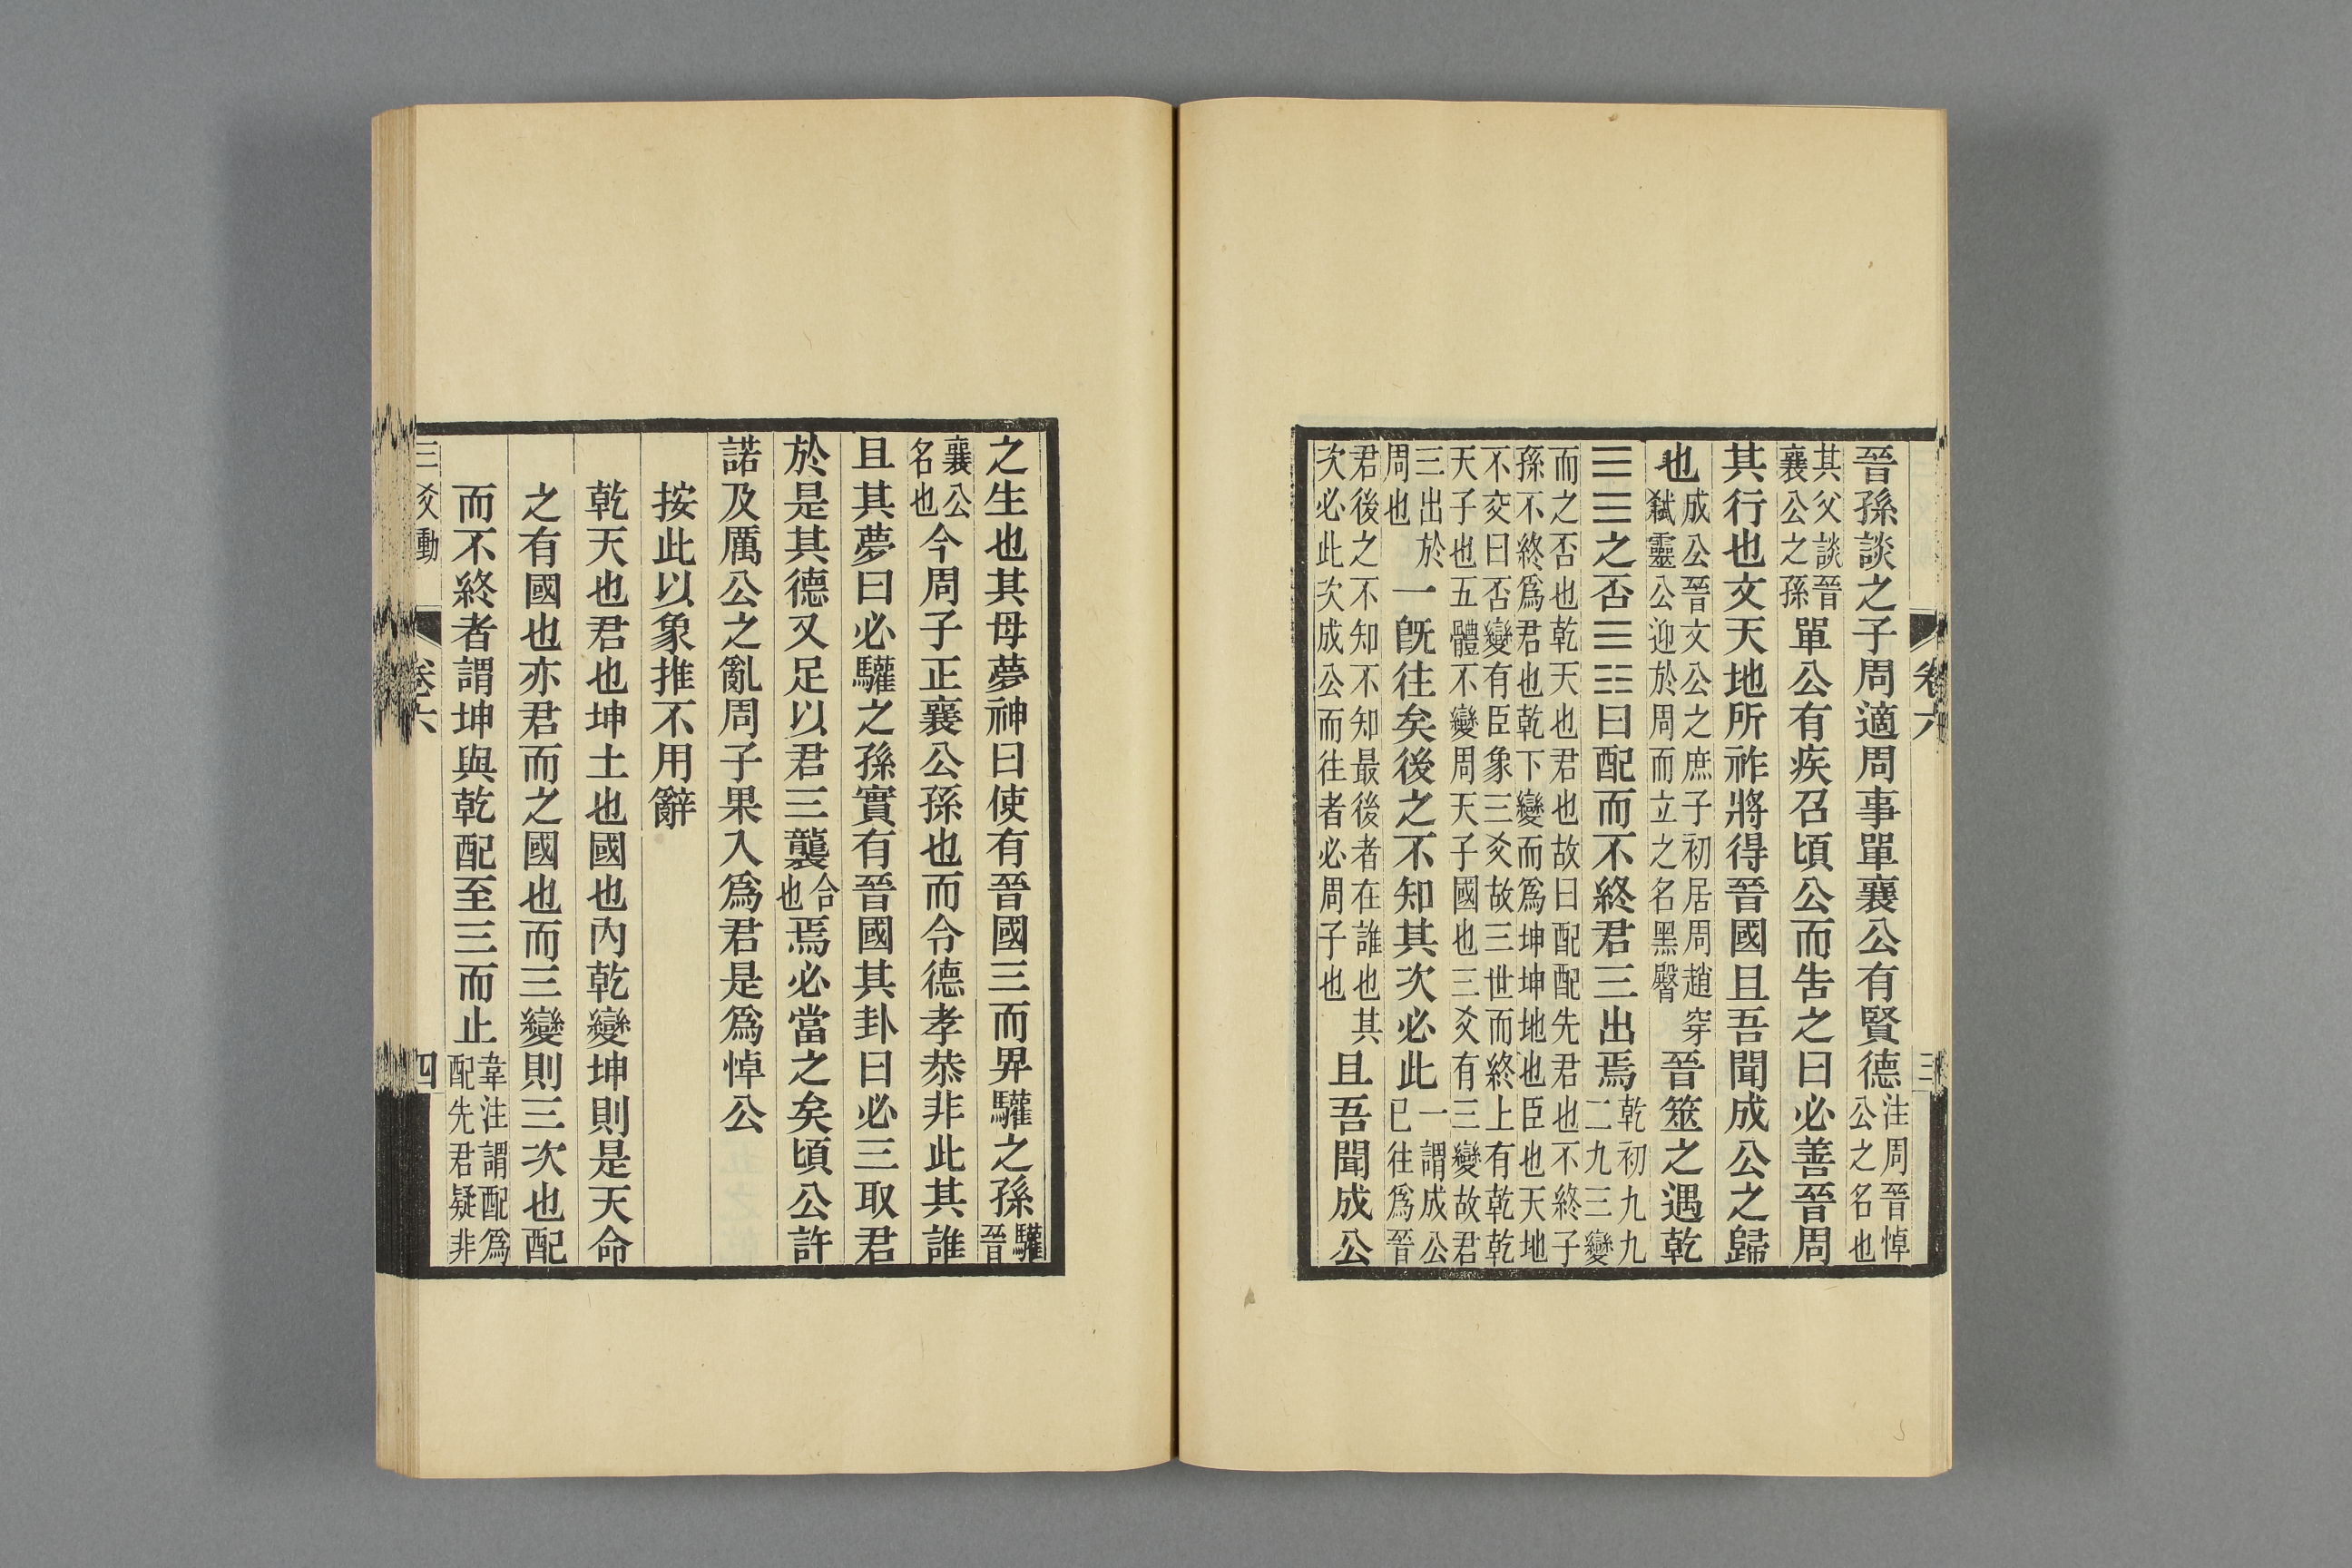 晉孫談之子周適周事單襄公有賢德注周晉悼公之名也
其父談晉襄公之孫單公有疾召頃公而告之曰必善晉周
其行也文天地所祚將得晉國且吾聞成公之歸
也成公晉文公之庶子初居周趙穿弑靈公迎於周而立之名黑臀晉筮之遇乾
☰☰之否☰☷曰配而不終君三出焉乾初九九二九三變
而之否也乾天也君也故曰配配先君也不終子
孫不終爲君也乾下變而爲坤坤地也臣也天地
不交曰否變有臣象三爻故三世而終上有乾乾
天子也五體不變周天子國也三爻有三變故君
三出於周也一旣往矣後之不知其次必此一謂成公已往爲晉
君後之不知不知最後者在誰也其次必此次成公而往者必周子也且吾聞成公
卷六
三
之生也其母夢神曰使有晉國三而畀驩之孫驩晉
襄公名也今周子正襄公孫也而令德孝恭非此其誰
且其夢曰必驩之孫實有晉國其卦曰必三取君
於是其德又足以君三襲合也焉必當之矣頃公許
諾及厲公之亂周子果入爲君是爲悼公
按此以象推不用辭
乾天也君也坤土也國也內乾變坤則是天命
之有國也亦君而之國也而三變則三次也配
而不終者謂坤與乾配至三而止韋注謂配爲配先君疑非
三爻動
卷六
四